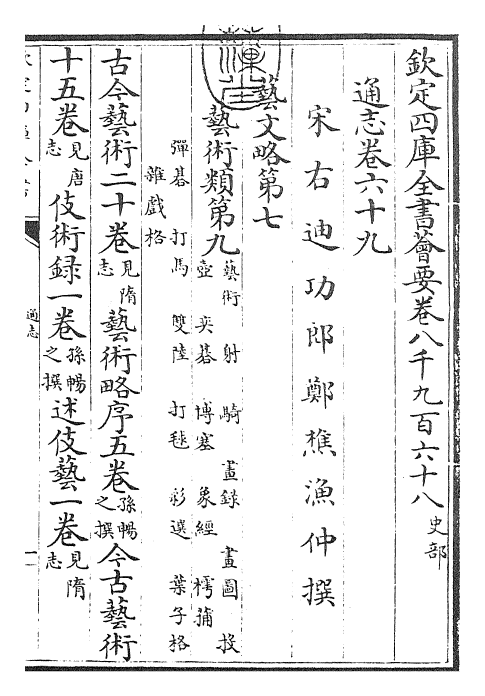 欽定四庫全書薈要卷八千九百六十八 史部
通志卷六十九
宋右迪功郎鄭樵漁仲撰
藝文略第七
藝術類第九 藝術 射 騎 畫録 畫圖 投
壺 奕碁 博塞 象經 樗蒲
彈碁 打馬 雙陸 打毬 彩選 葉子格
雜戲格
古今藝術二十卷 見隋志 藝術略序五卷 孫暢之撰 今古藝術
十五卷 見唐志 伎術録一卷 孫暢之撰 述伎藝一卷 見隋志
通志
一